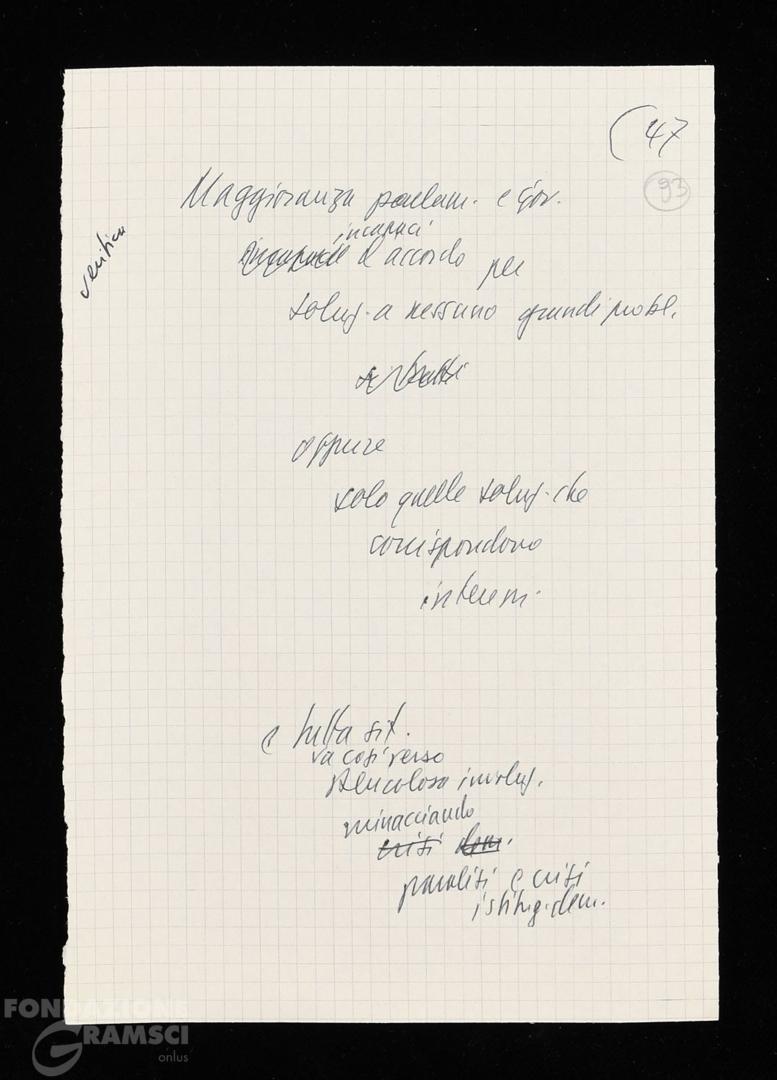 (47
93
Maggioranza parlam. e gov.
verifica
incapaci
d'accordo per
soluz. a nessuno grandi probl.
oppure
solo quelle soluz. che
corrispondono
interessi.
e tutta sit.
va così verso
pericolosa involuz.
minacciando
crisi dem.
paralisi e crisi
istituz. dem.
FONDAZIONE
GRAMSCI
onlus